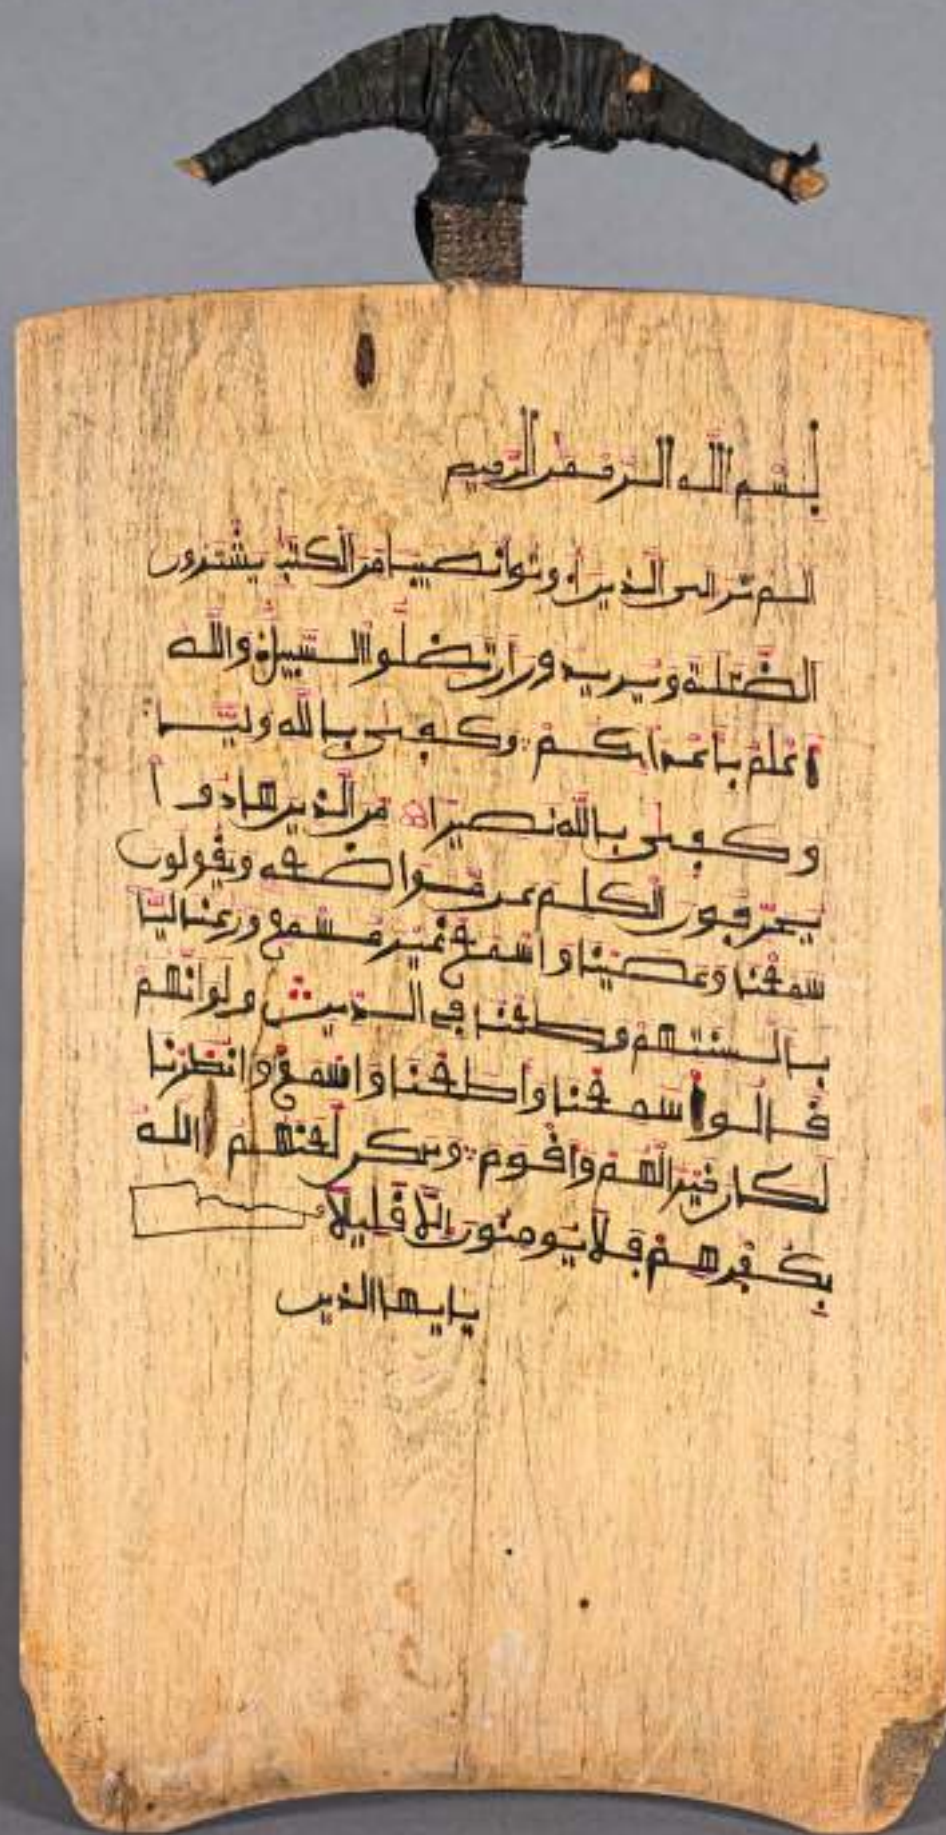 بسم الله الرحمن الرحيم
الم تر الى الذين اوتوا نصيبا من الكتب يشترون
الضللة ويريدون ان تضلوا السبيل والله
اعلم باعدائكم وكفى بالله وليا
وكفى بالله نصيرا من الذين هادوا
يحرفون الكلم عن مواضعه ويقولون
سمعنا وعصينا واسمع غير مسمع ورعنا ليا
بالسنتهم وطعنا في الدين ولو انهم
قالوا سمعنا واطعنا واسمع وانظرنا
لكان خيرا لهم واقوم ولكن لعنهم الله
بكفرهم فلا يومنون الا قليلا
يايها الذين